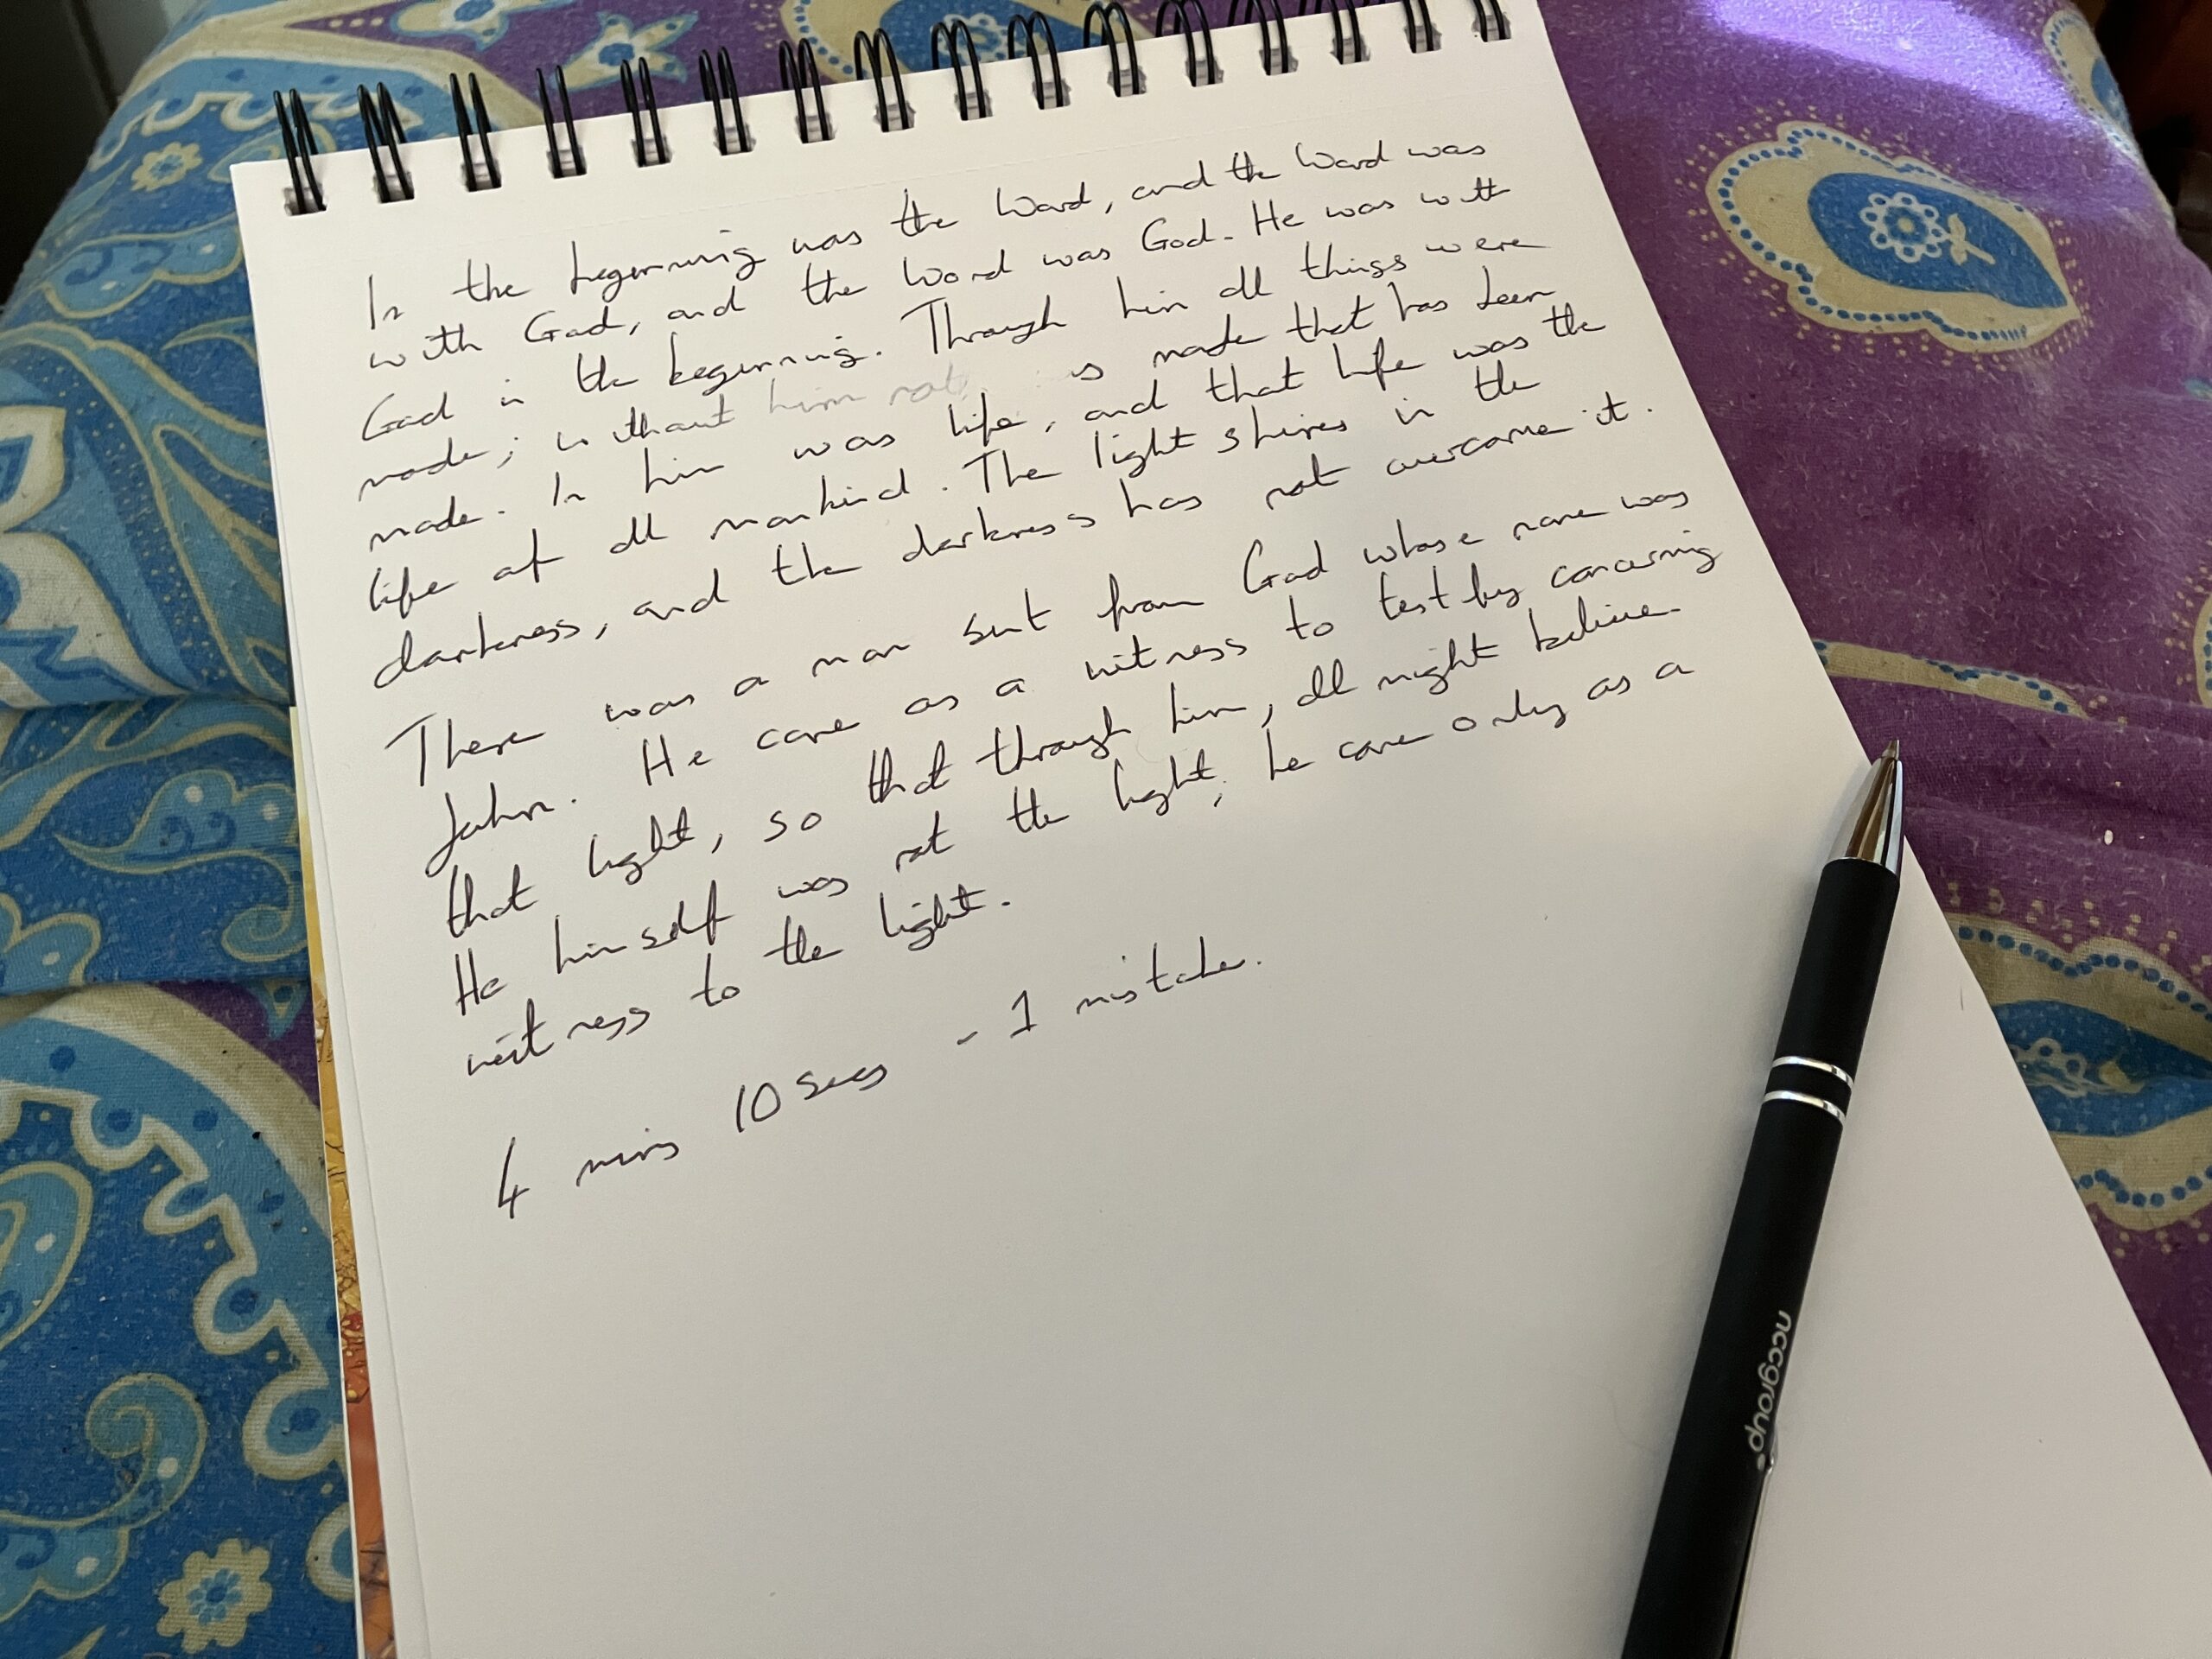 In the beginning was the Word, and the Word was
with God, and the Word was God. He was with
God in the beginning. Through him all things were
made; without him not is made that has been
made. In him was life, and that life was the
life of all mankind. The light shines in the
darkness, and the darkness has not overcome it.
There was a man sent from God whose name was
John. He came as a witness to testify concerning
that light, so that through him, all might believe.
He himself was not the light; he came only as a
witness to the light.
4 mins 10 secs - 1 mistake.
nccgroup